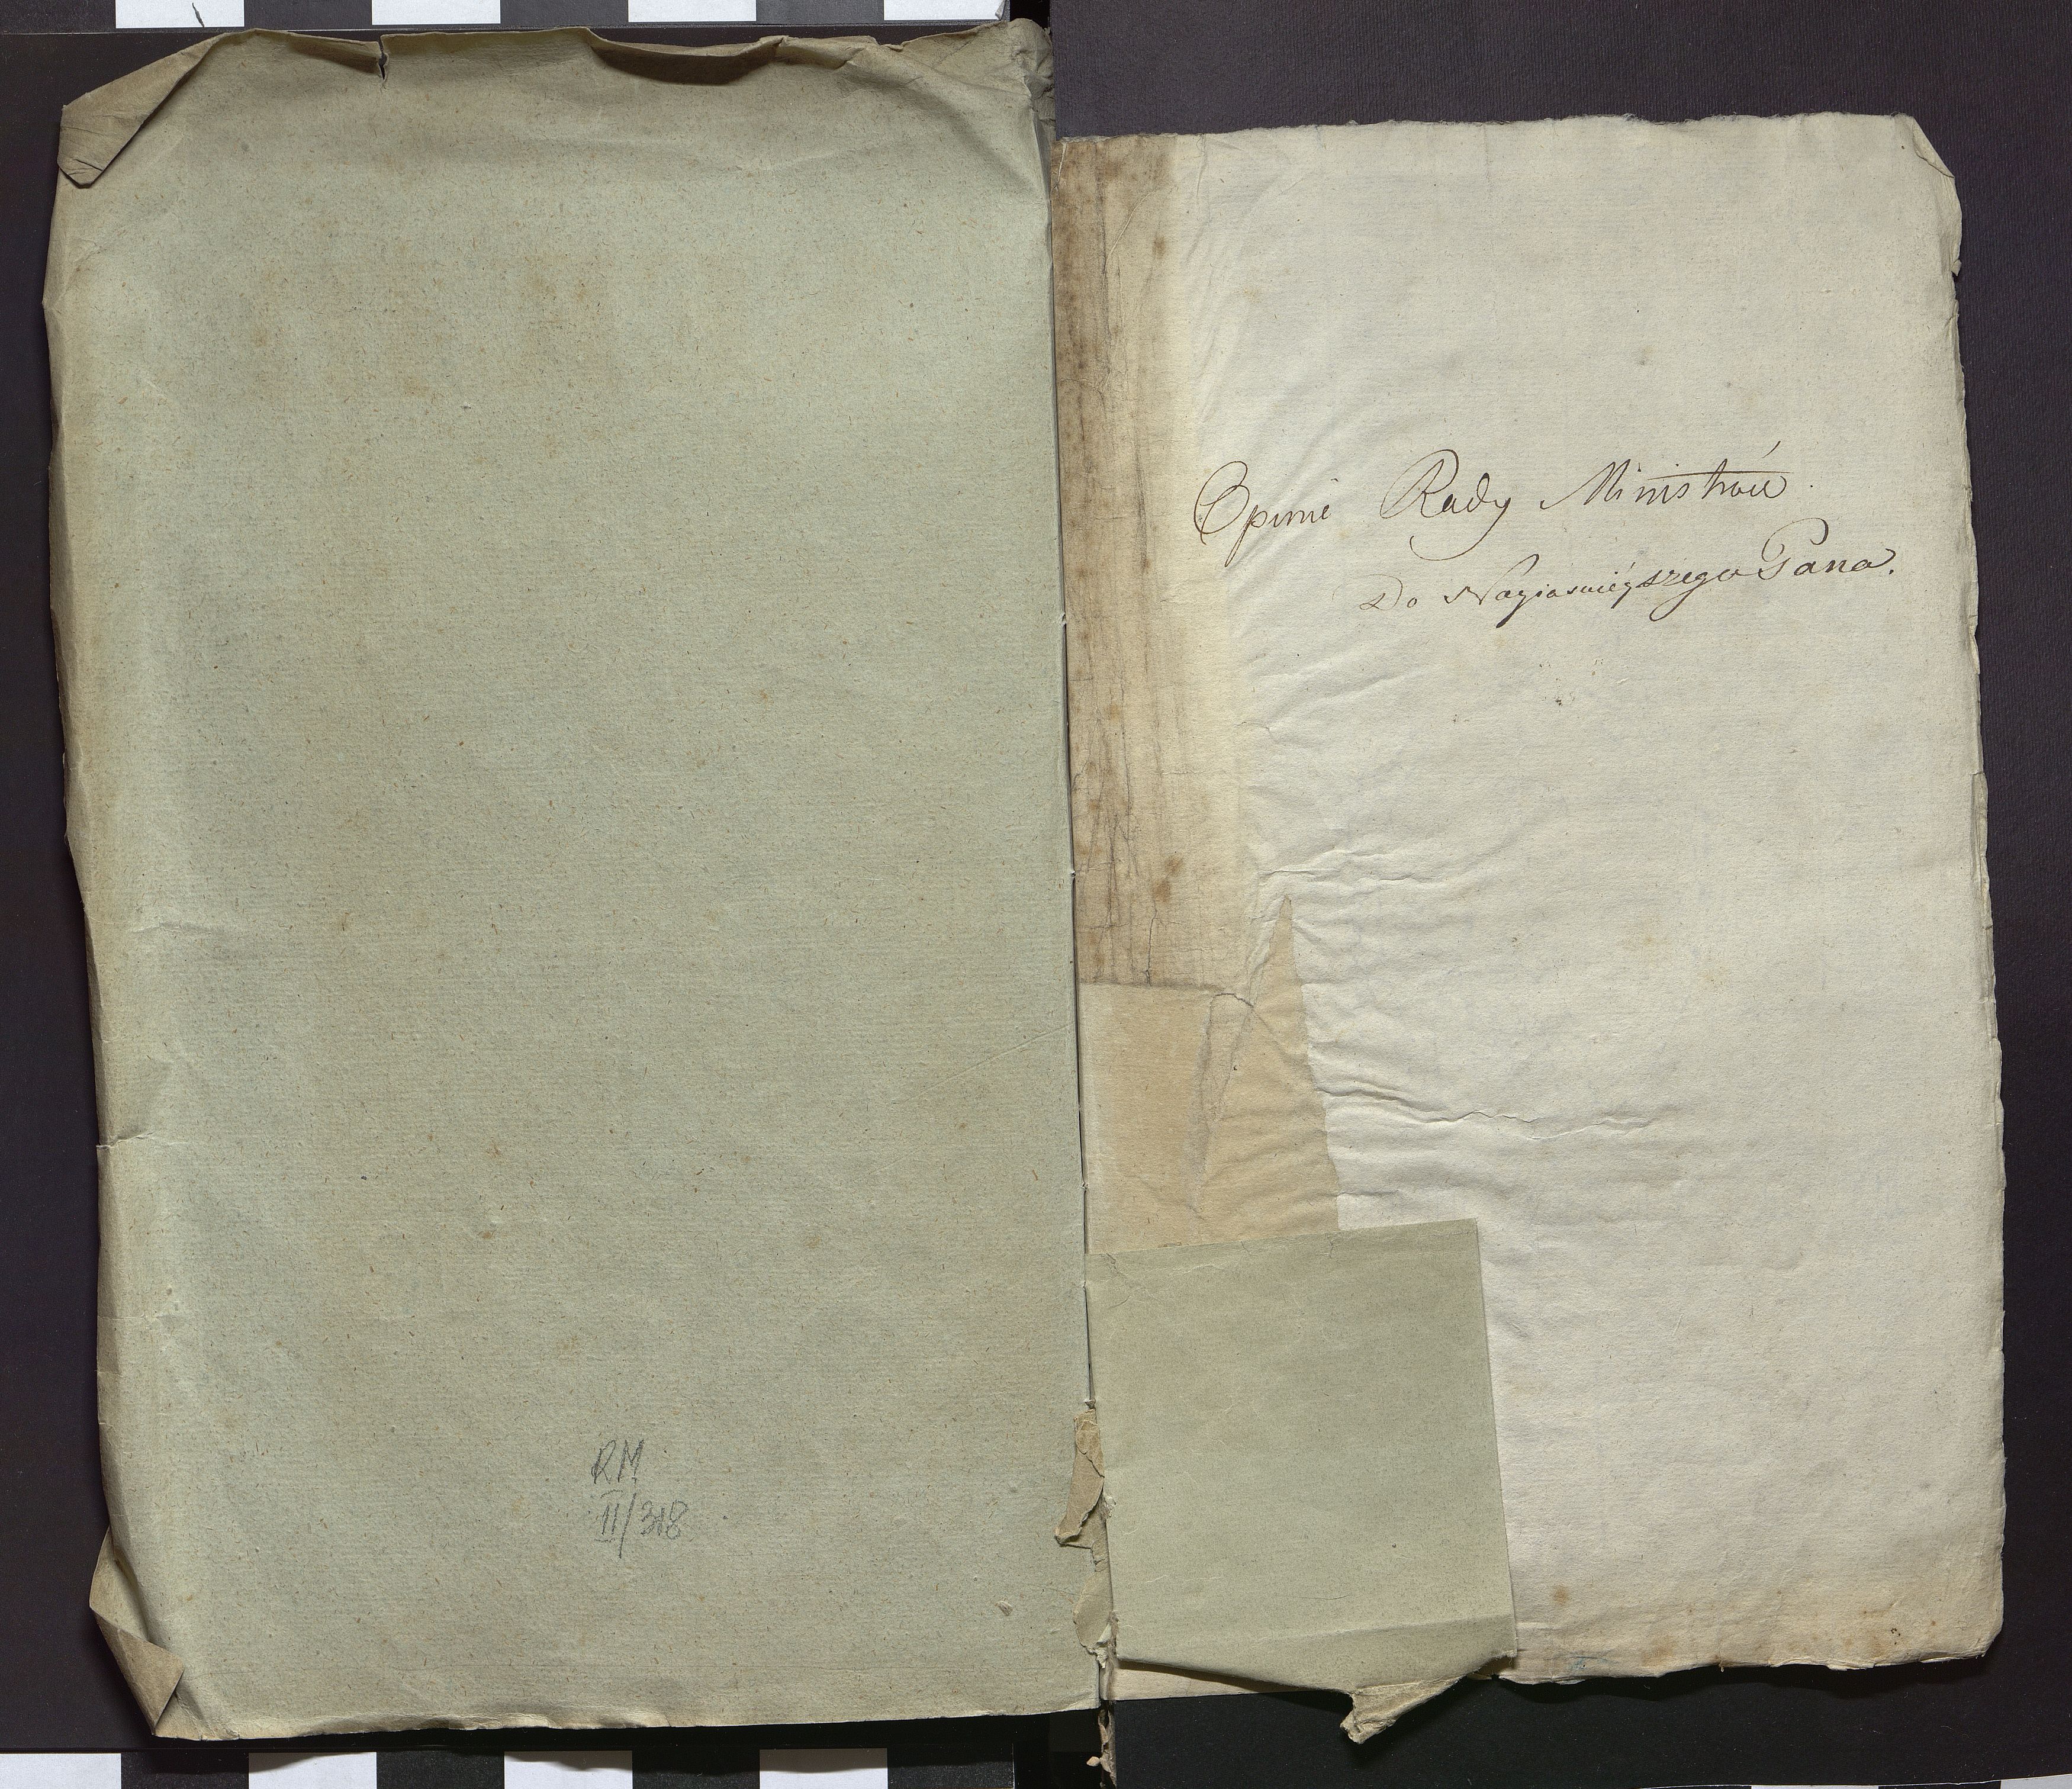 RM
II/318
Opinie Rady Ministrów
Do Nayiasnieyszego Pana.